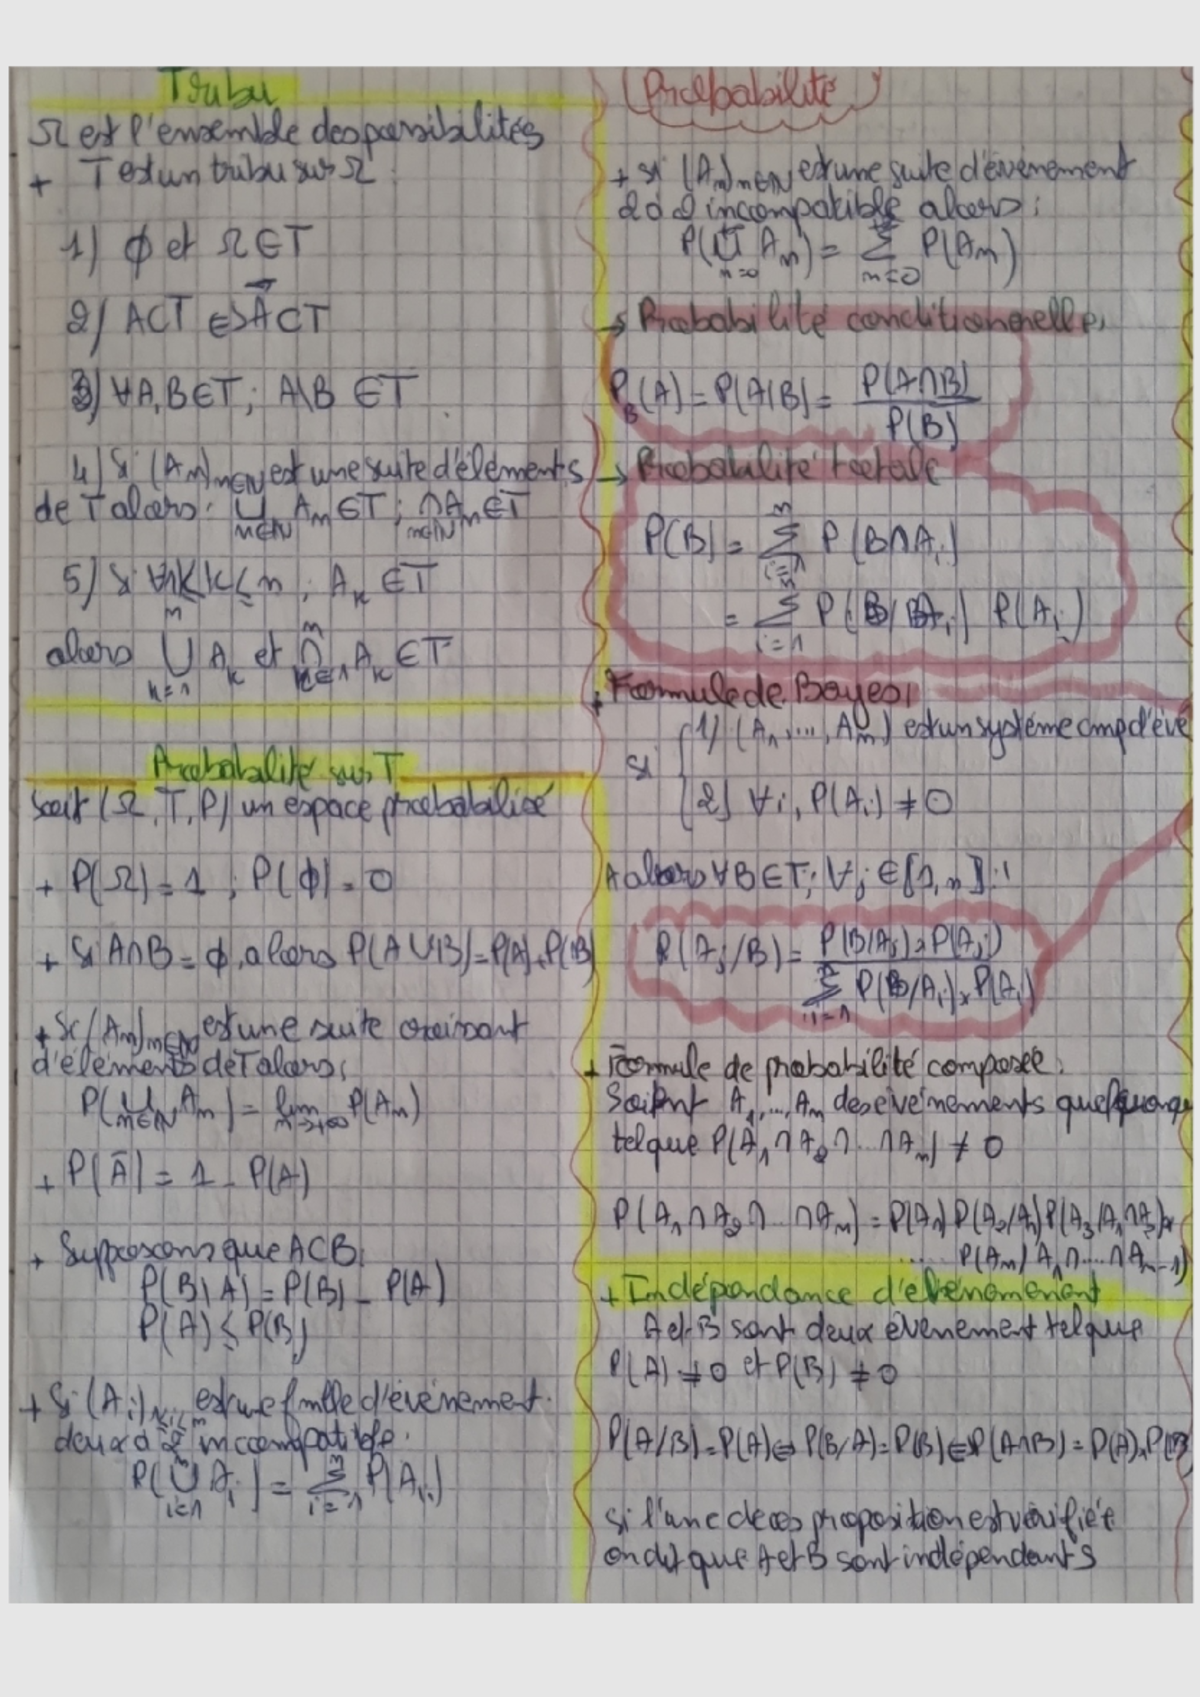 Tribu
Ω est l'ensemble des possibilités
+ T est un tribu sur Ω :
1) ϕ et Ω ∈ T
2) A ⊂ T ⇔ Ā ⊂ T
3) ∀A, B ∈ T ; A\B ∈ T
4) Si (An)n∈N est une suite d'éléments
de T alors : ∪n∈N An ∈ T ; ∩n∈N An ∈ T
5) Si ∀ 1 ≤ k ≤ n ; Ak ∈ T
alors ∪(k=1 à n) Ak et ∩(k=1 à n) Ak ∈ T
Probabilité sur T
Soit (Ω, T, P) un espace probabilisé
+ P(Ω) = 1 ; P(ϕ) = 0
+ Si A∩B = ϕ, alors P(A∪B) = P(A)+P(B)
+ Si (An)n∈N est une suite croissant
d'éléments de T alors :
P(∪n∈N An) = lim n→+∞ P(An)
+ P(Ā) = 1 - P(A)
+ Supposons que A⊂B :
P(B\A) = P(B) - P(A)
P(A) ≤ P(B)
+ Si (Ai)1≤i≤n est une fmille d'événement
deux à 2 incompatible.
P(∪(i=1 à n) Ai) = Σ(i=1 à n) P(Ai)
Probabilité
+ si (An)n∈N est une suite d'événement
2 à 2 incompatible alors :
P(∪(n=0 à +∞) An) = Σ(n=0 à +∞) P(An)
→ Probabilité conditionnelle,
P_B(A) = P(A|B) = P(A∩B)/P(B)
→ Probabilité totale
P(B) = Σ(i=1 à n) P(B∩Ai)
= Σ(i=1 à n) P(B/Ai) P(Ai)
+ Formule de Bayes,
si { 1) (A1,...,An) est un système cmp d'évé
2) ∀i, P(Ai) ≠ 0
alors ∀B ∈ T ; ∀j ∈ [1,n] :
P(Aj/B) = P(B/Aj)×P(Aj) / Σ(i=1 à n) P(B/Ai)×P(Ai)
+ Formule de probabilité composée :
Soient A1,...,An des événements quelquonqu
tel que P(A1∩A2∩...∩An) ≠ 0
P(A1∩A2∩...∩An) = P(A1)P(A2/A1)P(A3/A1∩A2)×
...... P(An/A1∩....∩An-1)
+ Indépendance d'événement
A et B sont deux évènement tel que
P(A) ≠ 0 et P(B) ≠ 0
P(A/B) = P(A) ⇔ P(B/A) = P(B) ⇔ P(A∩B) = P(A)×P(B
si l'une de ces proposition est vérifiée
on dit que A et B sont indépendants